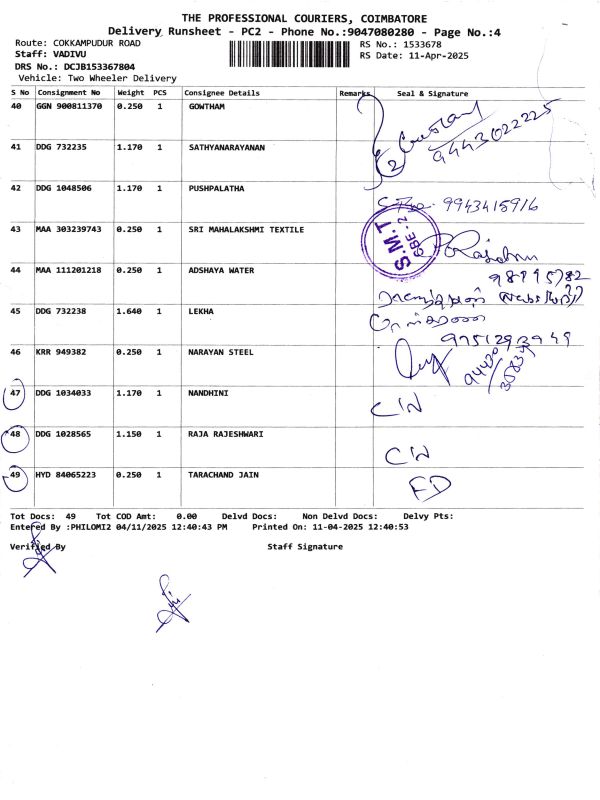 THE PROFESSIONAL COURIERS, COIMBATORE
Delivery Runsheet - PC2 - Phone No.:9047080280 - Page No.:4
Route: COKKAMPUDUR ROAD RS No.: 1533678
Staff: VADIVU RS Date: 11-Apr-2025
DRS No.: DCJB153367804
Vehicle: Two Wheeler Delivery
S No Consignment No Weight PCS Consignee Details Remarks Seal & Signature
40 GGN 900811370 0.250 1 GOWTHAM
9443022225
41 DDG 732235 1.170 1 SATHYANARAYANAN
2
42 DDG 1048506 1.170 1 PUSHPALATHA
9943415916
43 MAA 303239743 0.250 1 SRI MAHALAKSHMI TEXTILE
S.M.T CBE-2
44 MAA 111201218 0.250 1 ADSHAYA WATER
45 DDG 732238 1.640 1 LEKHA
46 KRR 949382 0.250 1 NARAYAN STEEL
47 DDG 1034033 1.170 1 NANDHINI
C/N
48 DDG 1028565 1.150 1 RAJA RAJESHWARI
C/N
49 HYD 84065223 0.250 1 TARACHAND JAIN
ED
Tot Docs: 49 Tot COD Amt: 0.00 Delvd Docs: Non Delvd Docs: Delvy Pts:
Entered By :PHILOMI2 04/11/2025 12:40:43 PM Printed On: 11-04-2025 12:40:53
Verified By Staff Signature